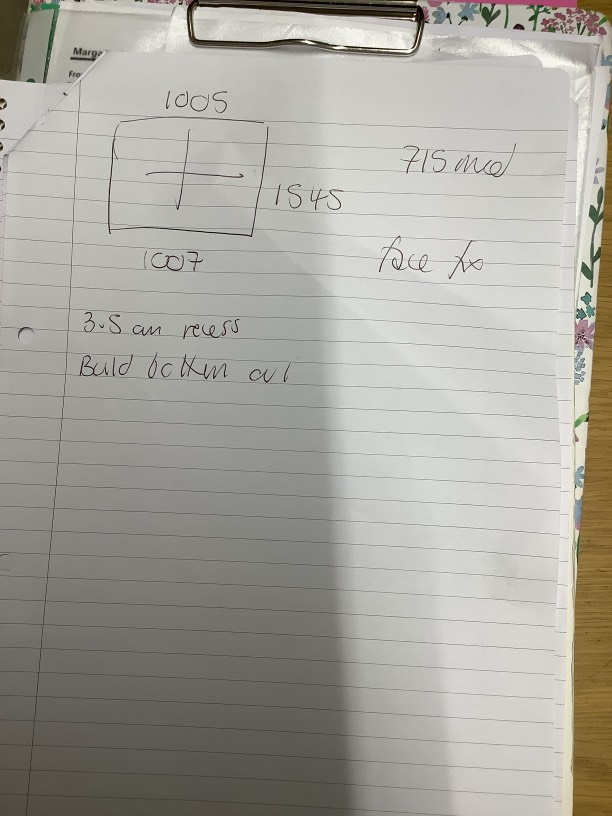 Marga
1005
715 mid
1545
1007
face fix
3.5 cm recess
Build bottom out